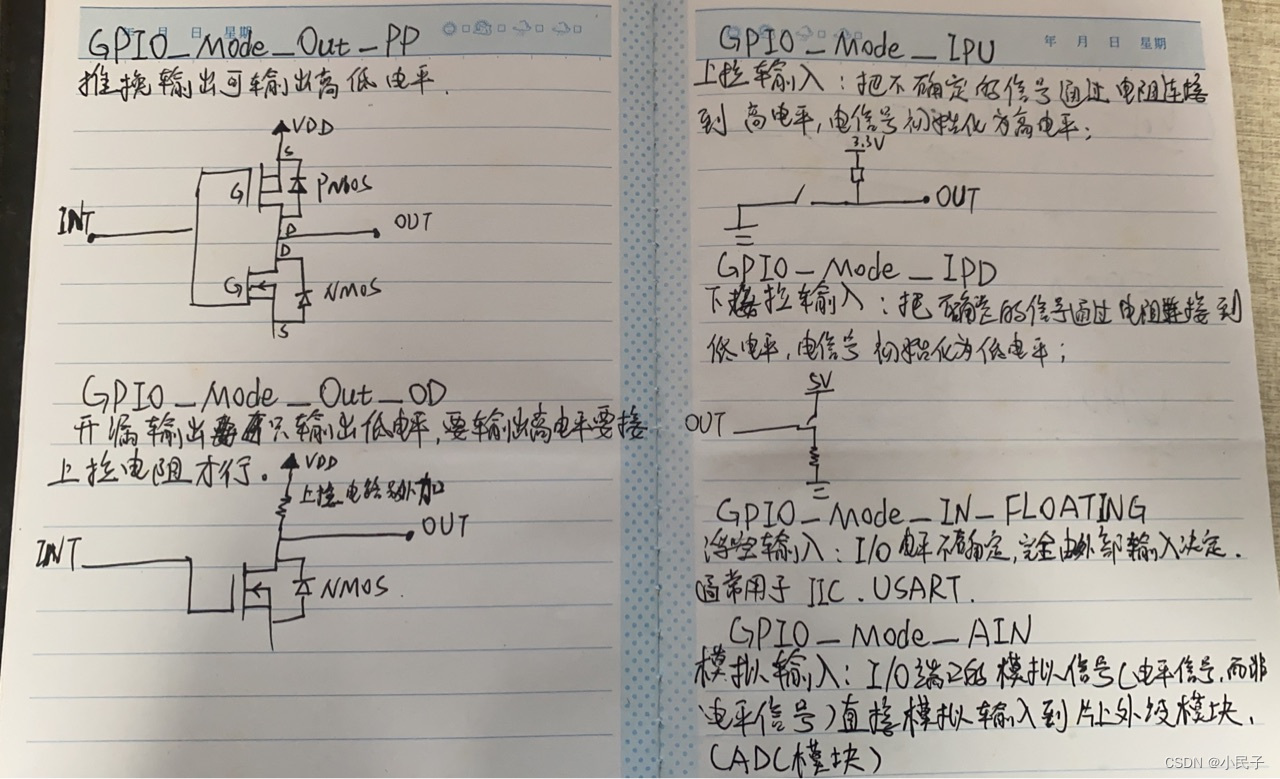 年 月 日 星期
GPIO_Mode_Out_PP
推挽输出可输出高低电平.
VDD
S
G
PMOS
INT
D
OUT
D
G
NMOS
S
GPIO_Mode_Out_OD
开漏输出只输出低电平,要输出高电平要接
上拉电阻才行.
VDD
上拉电路外加
OUT
INT
NMOS.
年 月 日 星期
GPIO_Mode_IPU
上拉输入:把不确定的信号通过电阻连接
到高电平,电信号初始化为高电平;
3.3V
OUT
GPIO_Mode_IPD
下拉输入:把不确定的信号通过电阻连接到
低电平,电信号初始化为低电平;
5V
OUT
GPIO_Mode_IN_FLOATING
浮空输入:I/O电平不确定,完全由外部输入决定.
通常用于IIC.USART.
GPIO_Mode_AIN
模拟输入:I/O端口的模拟信号(电平信号,而非
电平信号)直接模拟输入到片上外设模块,
(ADC模块)
CSDN @小民子